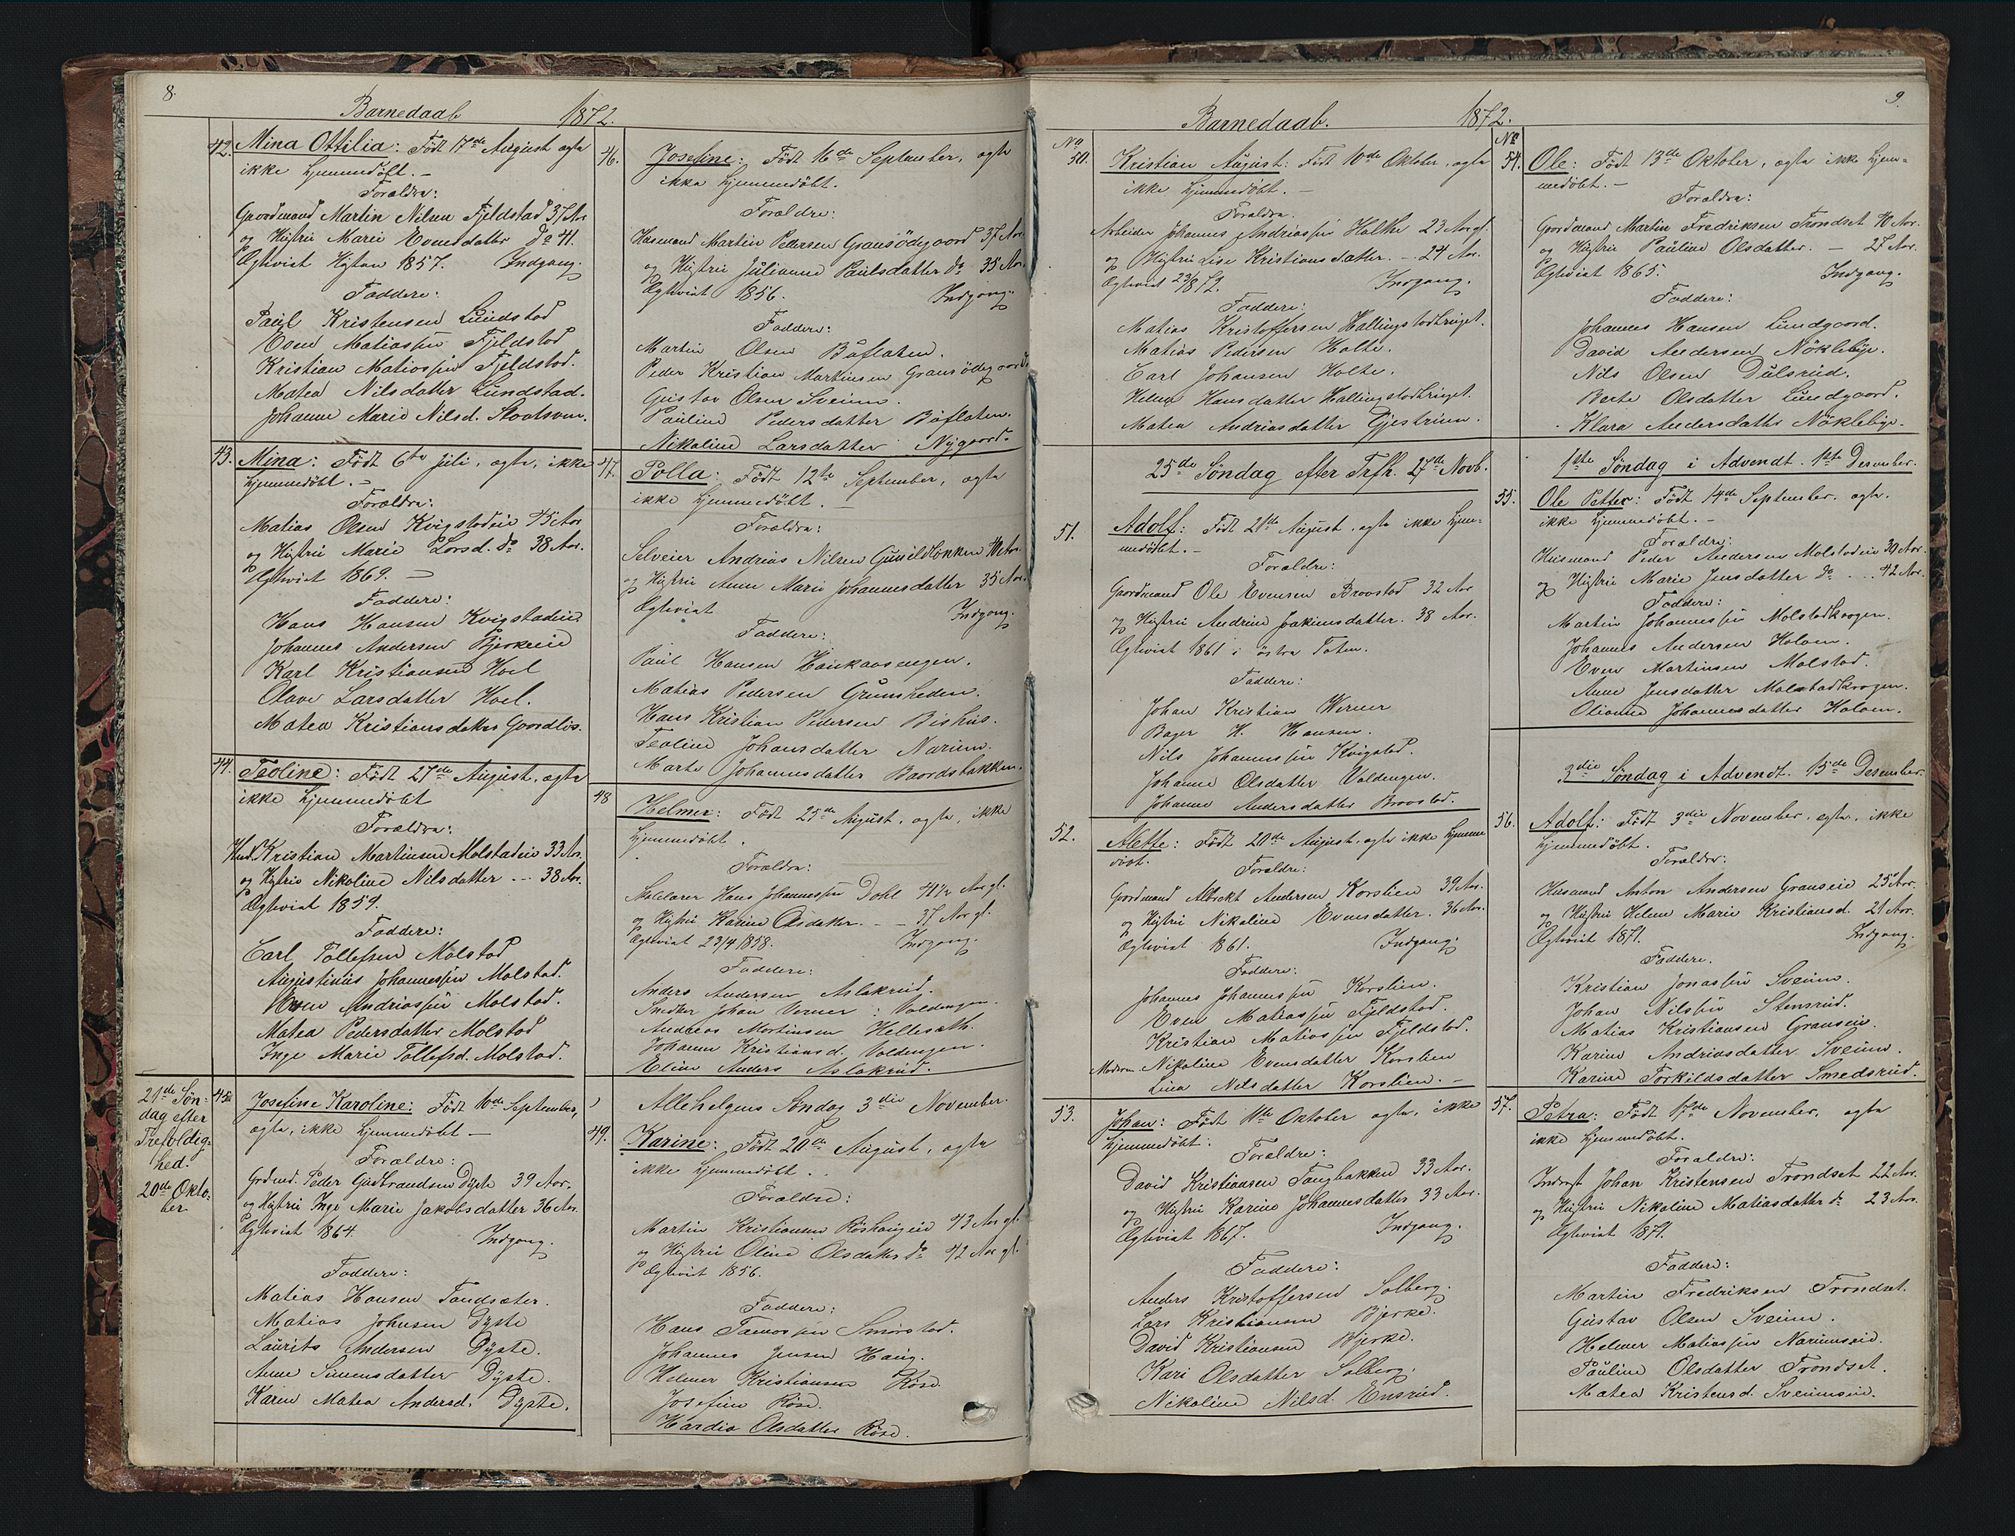 8.
Barnedaab 1872.
42. Mina Ottilia: Født 17de August ægte
ikke hjemmedøbt. —
Forældre:
Gaardmand Martin Nilsen Fjeldstad 37 Aar
og Hustru Marie Evensdatter Do 41.
Ægteviet Høsten 1857. Indgang.
Faddere:
Paul Kristensen Lundstad
Even Matiassen Fjeldstad
Kristian Matiassen Fjeldstad.
Matea Nilsdatter Lundstad.
Johanne Marie Nilsd.
43. Mina: Født 6te Juli, ægte, ikke
hjemmedøbt. —
Forældre:
Matias Olsen Kvigstadeie 45 Aar
og Hustru Marie Larsd. Do 38 Aar.
Ægteviet 1869. —
Faddere:
Hans Hansen Kvigstadeie
Johannes Andersen Bjerkeeie
Karl Kristiansen Hoel
Olave Larsdatter Hoel.
Matea Kristiansdatter Gaardløs.
44. Teoline: Født 27de August, ægte
ikke hjemmedøbt
Forældre:
Husm. Kristian Martinsen Molstadeie 33 Aar.
og Hustru Nikoline Nilsdatter — 38 Aar.
Ægteviet 1859.
Faddere:
Carl Tollefsen Molstad
Augustinus Johannessen Molstad.
Even Andriassen Molstad.
Matea Pedersdatter Molstad
Inge Marie Tollefsd. Molstad.
21de Søn-
dag efter
Trefoldig-
hed.
20de Okto-
ber
45. Josefine Karoline: Født 16de September,
ægte, ikke hjemmedøbt —
Forældre:
Grdmd. Peder Gudbrandsen Dyste 39 Aar.
og Hustru Inge Marie Jakobsdatter 36 Aar.
Ægteviet 1864. Indgang.
Faddere:
Matias Hansen Sandsæter.
Matias Johnsen Dyste
Laurits Andersen Dyste.
Anne Simensdatter Dyste.
Karen Matea Andersd. Dyste.
46. Josefine: Født 16de September, ægte
ikke hjemmedøbt.
Forældre:
Husmand Martin Pedersen Gransødegaard 37 Aar
og Hustru Juliane Paulsdatter Do 35 Aar.
Ægteviet 1856. Indgang.
Faddere:
Martin Olsen Bøflaten.
Peder Kristian Martinsen Gransødegaard
Gustav Olsen Sveum.
Pauline Pedersdatter Bøflaten.
Nikoline Larsdatter Nygaard.
47. Polla: Født 12te September, ægte
ikke hjemmedøbt. —
Forældre:
Selveier Andrias Nilsen Gunildbakken 40 Aar.
og Hustru Anne Marie Johannesdatter 35 Aar.
Ægteviet Indgang.
Faddere:
Paul Hansen Haukaasengen.
Matias Pedersen Grumsheden.
Hans Kristian Pedersen Bishus.
Teoline Johansdatter Narum.
Marte Johannesdatter Baardsbakken.
48 Helmer: Født 25de August, ægte, ikke
hjemmedøbt.
Forældre:
Hans Johannessen Dahl 41½ Aar gl.
og Hustru Karine Olsdatter. — 37 Aar gl.
Ægteviet 23/4 1858. Indgang.
Faddere:
Anders Andersen Aslakrud.
Snedker Johan Verner: Valdengen.
Andreas Mortinsen Hellesath.
Johanne Kristiansd. Valdengen.
Eline Anders Aslakrud.
Allehelgens Søndag 3die November.
49. Karine: Født 20de August, ægte
ikke hjemmedøbt.
Forældre:
Martin Kristiansen Røshaugeie 43 Aar gl.
og Hustru Oline Olsdatter Do 42 Aar gl.
Ægteviet 1856.
Faddere:
Hans Tamossen Smørstad.
Johannes Jensen Haug.
Helmer Kristiansen Røse
Josefine Røse.
Hardia Olsdatter Røse.
9.
Barnedaab. 1872.
No
50. Kristian August: Født 10de Oktober, ægte
ikke hjemmedøbt. —
Forældre.
Arbeider Johannes Andriassen Holthe 23 Aar gl.
og Hustru Lise Kristiansdatter. — 24 Aar.
Ægteviet 23/8 72. Indgang.
Faddere:
Matias Kristoffersen Hallingstadtriget.
Matias Pedersen Holte.
Carl Johansen Holte.
Helene Hansdatter Hallingstadtriget.
Matea Andriasdatter Gjestrum.
25de Søndag efter Trfh. 27de Novb.
51. Adolf: Født 21de August, ægte ikke hjem-
medøbt. —
Forældre:
Gaardmand Ole Evensen Bravstad 32 Aar
og Hustru Andrine Joakimsdatter. 38 Aar.
Ægteviet 1861 i østre Toten.
Faddere:
Johan Kristian Werner
Bager H. Hansen.
Nils Johannessen Kvigstad.
Johanne Olsdatter Valdengen.
Johanne Andersdatter Bravstad.
52. Alette: Født 20de August, ægte ikke hjemme
døbt.
Forældre:
Gaardmand Albrekt Andersen Korslien 39 Aar.
og Hustru Nikoline Evensdatter. 36 Aar.
Ægteviet 1861. Indgang.
Faddere:
Johannes Johannessen Korslien.
Even Matiassen Fjeldstad.
Kristian Matiassen Fjeldstad.
Moderen Nikoline Evensdatter Korslien
Lina Nilsdatter Korslien. —
53. Johan: Født 11te Oktober ægte, ikke
hjemmedøbt:
Forældre:
David Kristiansen Taugbakken 33 Aar.
og Hustru Karine Johannesdatter 33 Aar.
Ægteviet 1867. Indgang.
Faddere:
Anders Kristoffersen Solberg.
Lars Kristiansen Bjerke.
David Kristiansen Bjerke.
Kari Olsdatter Solberg.
Nikoline Nilsd. Ensrud.
No
54. Ole: Født 13de Oktober, ægte ikke hjem-
medøbt. —
Forældre:
Gaardmand Martin Fredriksen Trondset 40 Aar.
og Hustru Pauline Olsdatter. — 27 Aar.
Ægteviet 1865. Indgang.
Faddere:
Johannes Hansen Lundgaard.
David Andersen Nøkleby.
Nils Olsen Dulsrud.
Berte Olsdatter Lundgaard.
Klara Andersdatter Nøkleby.
1ste Søndag i Advendt. 1ste Desember.
55. Ole Petter: Født 14de September, ægte.
ikke hjemmedøbt. —
Forældre:
Husmand Peder Andersen Molstadeie 30 Aar.
og Hustru Marie Jensdatter Do . . . 42 Aar.
Faddere:
Martin Johannessen Molstadkrogen.
Johannes Andersen Holom.
Even Martinsen Molstad.
Anne Jensdatter Molstadkrogen.
Oliane Johannesdatter Holom.
3die Søndag i Advendt. 15de Desember.
56. Adolf: Født 3die November, ægte, ikke
hjemmedøbt.
Forældre:
Husmand Anton Andersen Granseie 25 Aar.
og Hustru Helene Marie Kristiansd. 21 Aar.
Ægteviet 1871. Indgang.
Faddere.
Kristian Jonassen Sveum.
Johan Nilssen Stensrud.
Matias Kristiansen Granseie.
Karine Andriasdatter Sveum.
Karine Torkildsdatter Smedsrud.
57. Petra: Født 17de November, ægte
ikke hjemmedøbt.
Forældre:
Inderst Johan Kristensen Trondset 22 Aar
og Hustru Nikoline Matiasdatter Do 23 Aar.
Ægteviet 1871.
Faddere:
Martin Fredriksen Trondset.
Gustav Olsen Sveum.
Helmer Matiassen Narumseie.
Pauline Olsdatter Trondset.
Matea Kristensd. Sveumseie.